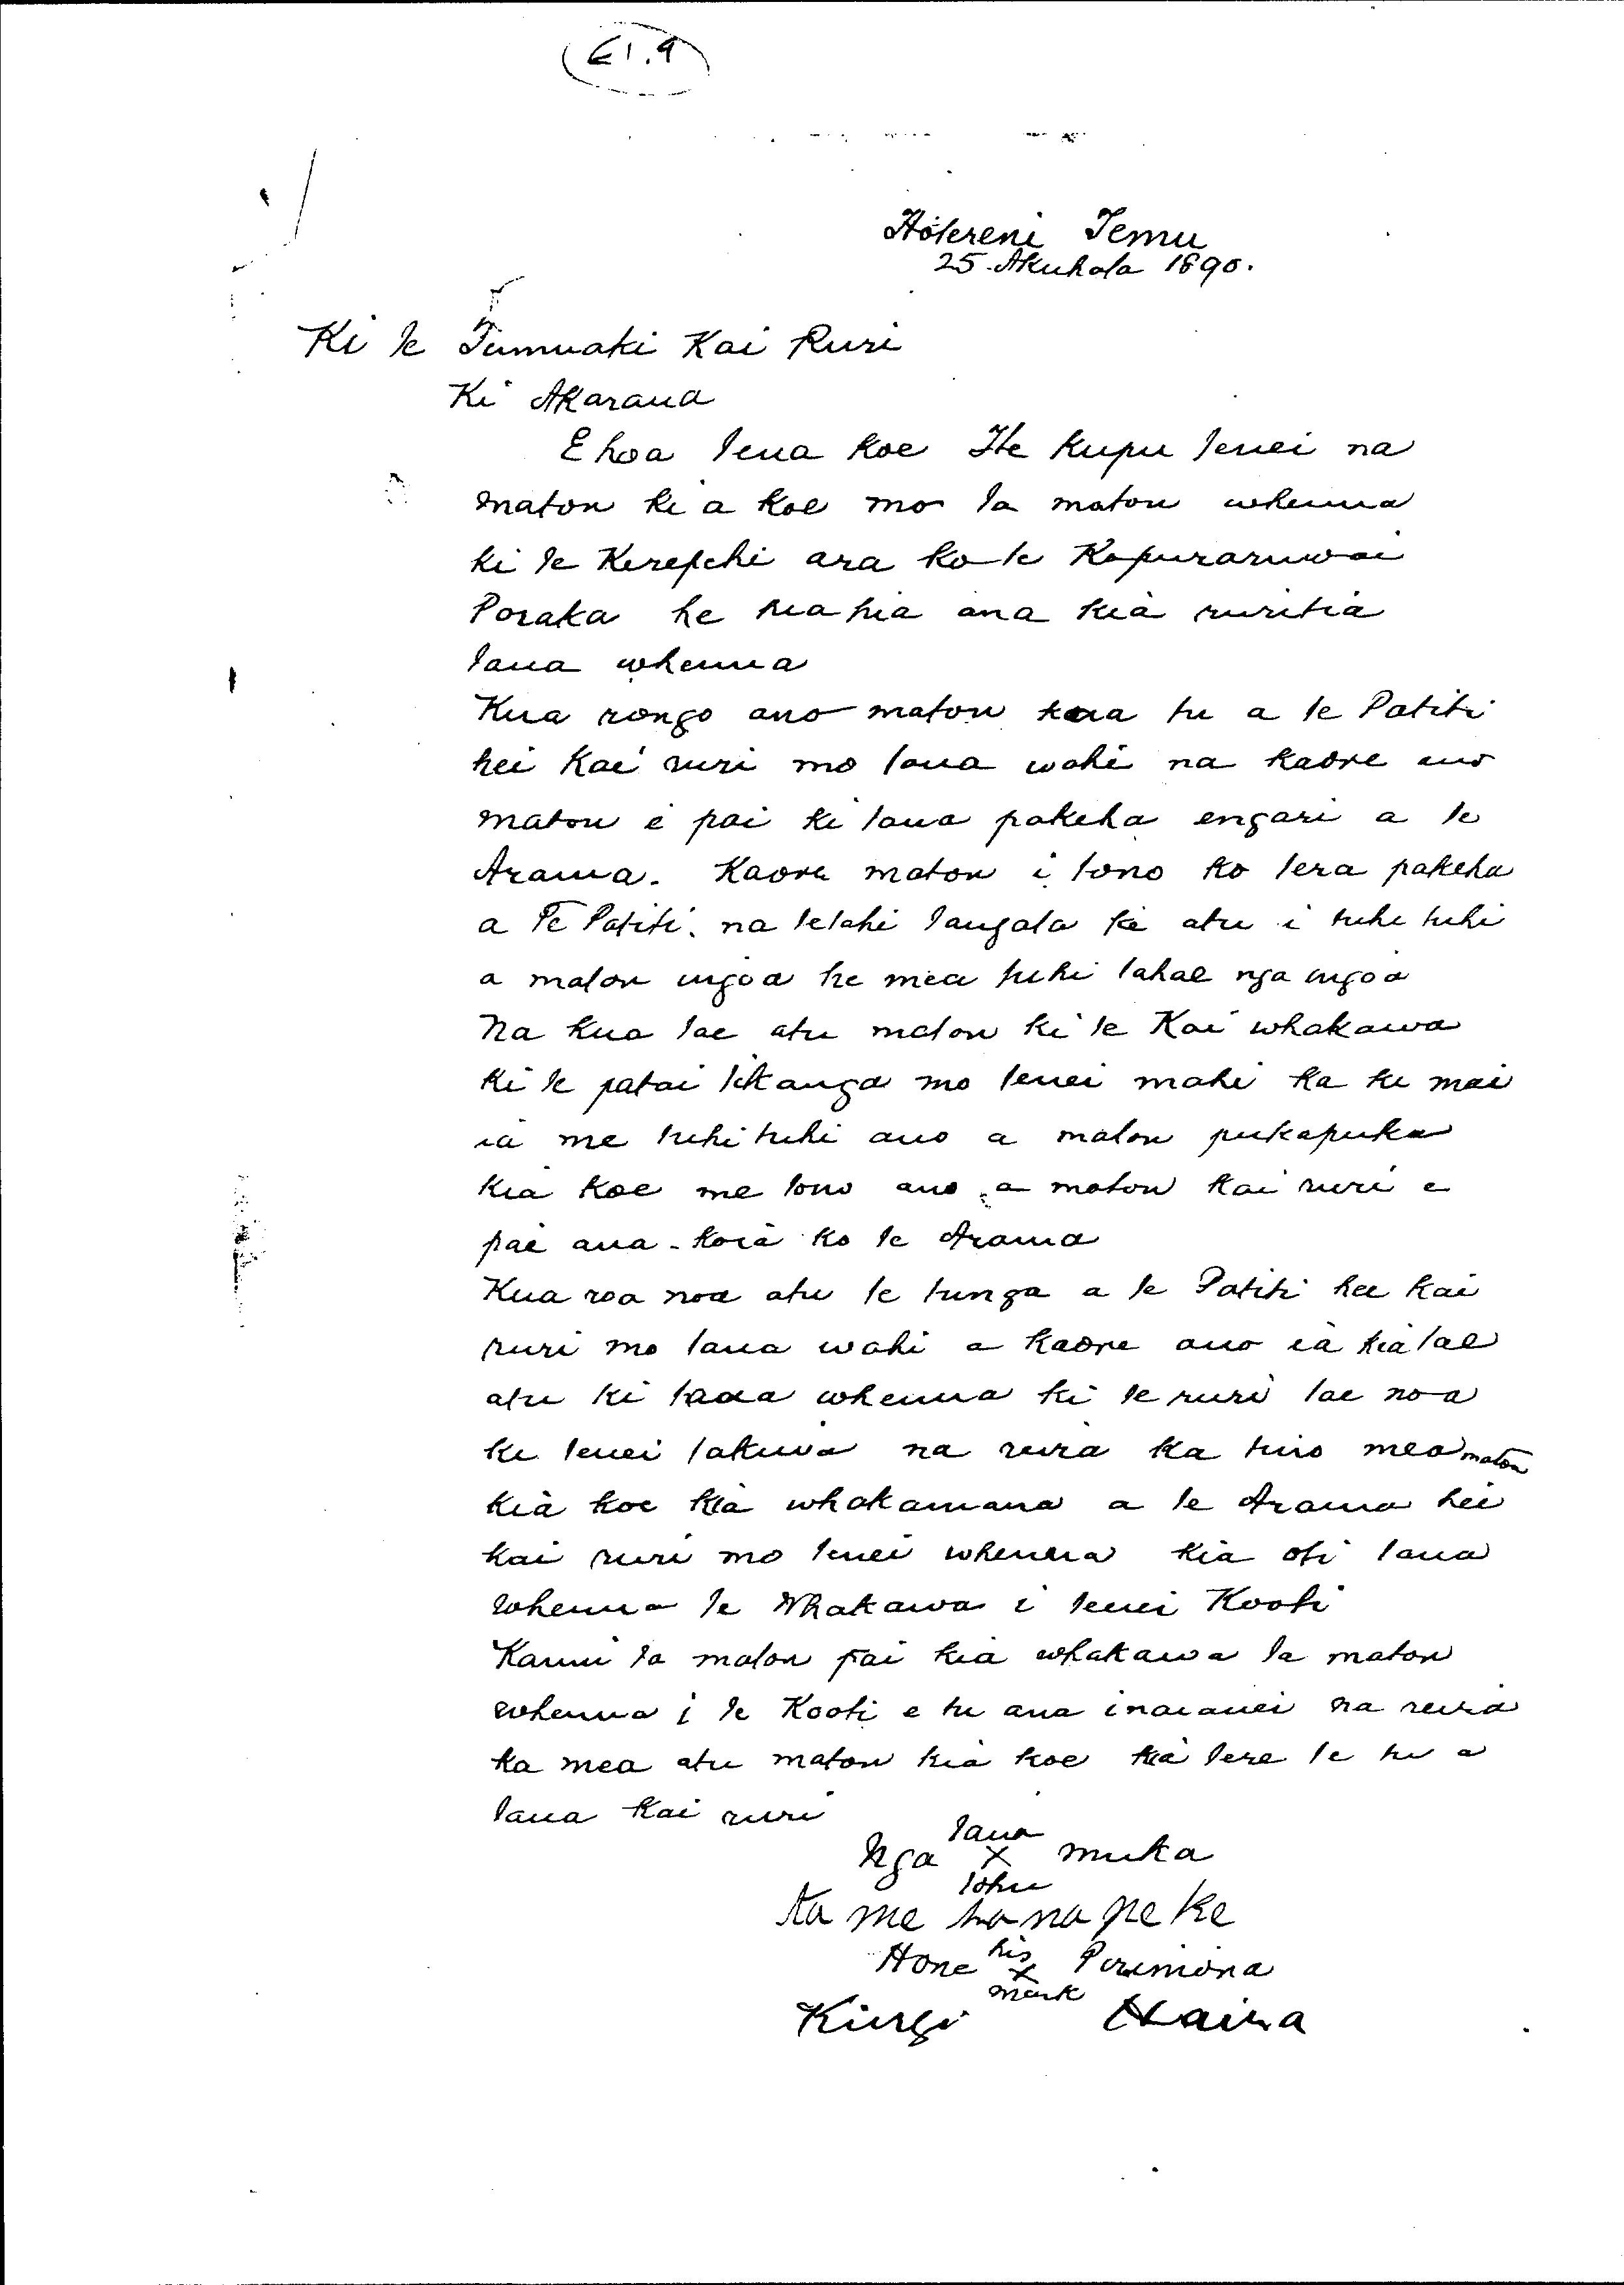 E1.9
Hotereni Temu
25 Akuhata 1890.
Ki te Tumuaki Kai Ruri
Ki Akarana
E hoa tena koe He kupu tenei na
matou ki a koe mo ta matou whenua
ki te Kerepehi ara ko te Kopuraruwai
Poraka he hiahia ana kia ruritia
taua whenua
Kua rongo ano matou kua tu a te Patiti
hei kai ruri mo taua wahi na kaore ano
matou e pai ki taua pakeha engari a te
Arama. Kaore matou i tono ko tera pakeha
a Te Patiti. na tetahi tangata ke atu i tuhi tuhi
a matou ingoa he mea tuhi tahae nga ingoa
Na kua tae atu matou ki te Kai whakawa
ki te patai tikanga mo tenei mahi ka ki mai
ia me tuhi tuhi ano a matou pukapuka
kia koe me tono ano a matou kai ruri e
pai ana - koia ko te Arama
Kua roa noa atu te tunga a te Patiti hei kai
ruri mo taua wahi a kaore ano ia kia tae
atu ki taua whenua ki te ruri tae noa
ki tenei takiwa na reira ka tino mea matou
kia koe kia whakamana a te Arama hei
kai ruri mo tenei whenua kia oti taua
whenua te Whakawa i tenei Kooti
Kanui ta matou pai kia whakawa ta matou
whenua i te Kooti e tu ana inaianei na reira
ka mea atu matou kia koe kia tere te tu a
taua kai ruri
Nga tana x tohu muka
ka me hana pe ke
Hone his x mark Pirimona
Kingi Naina